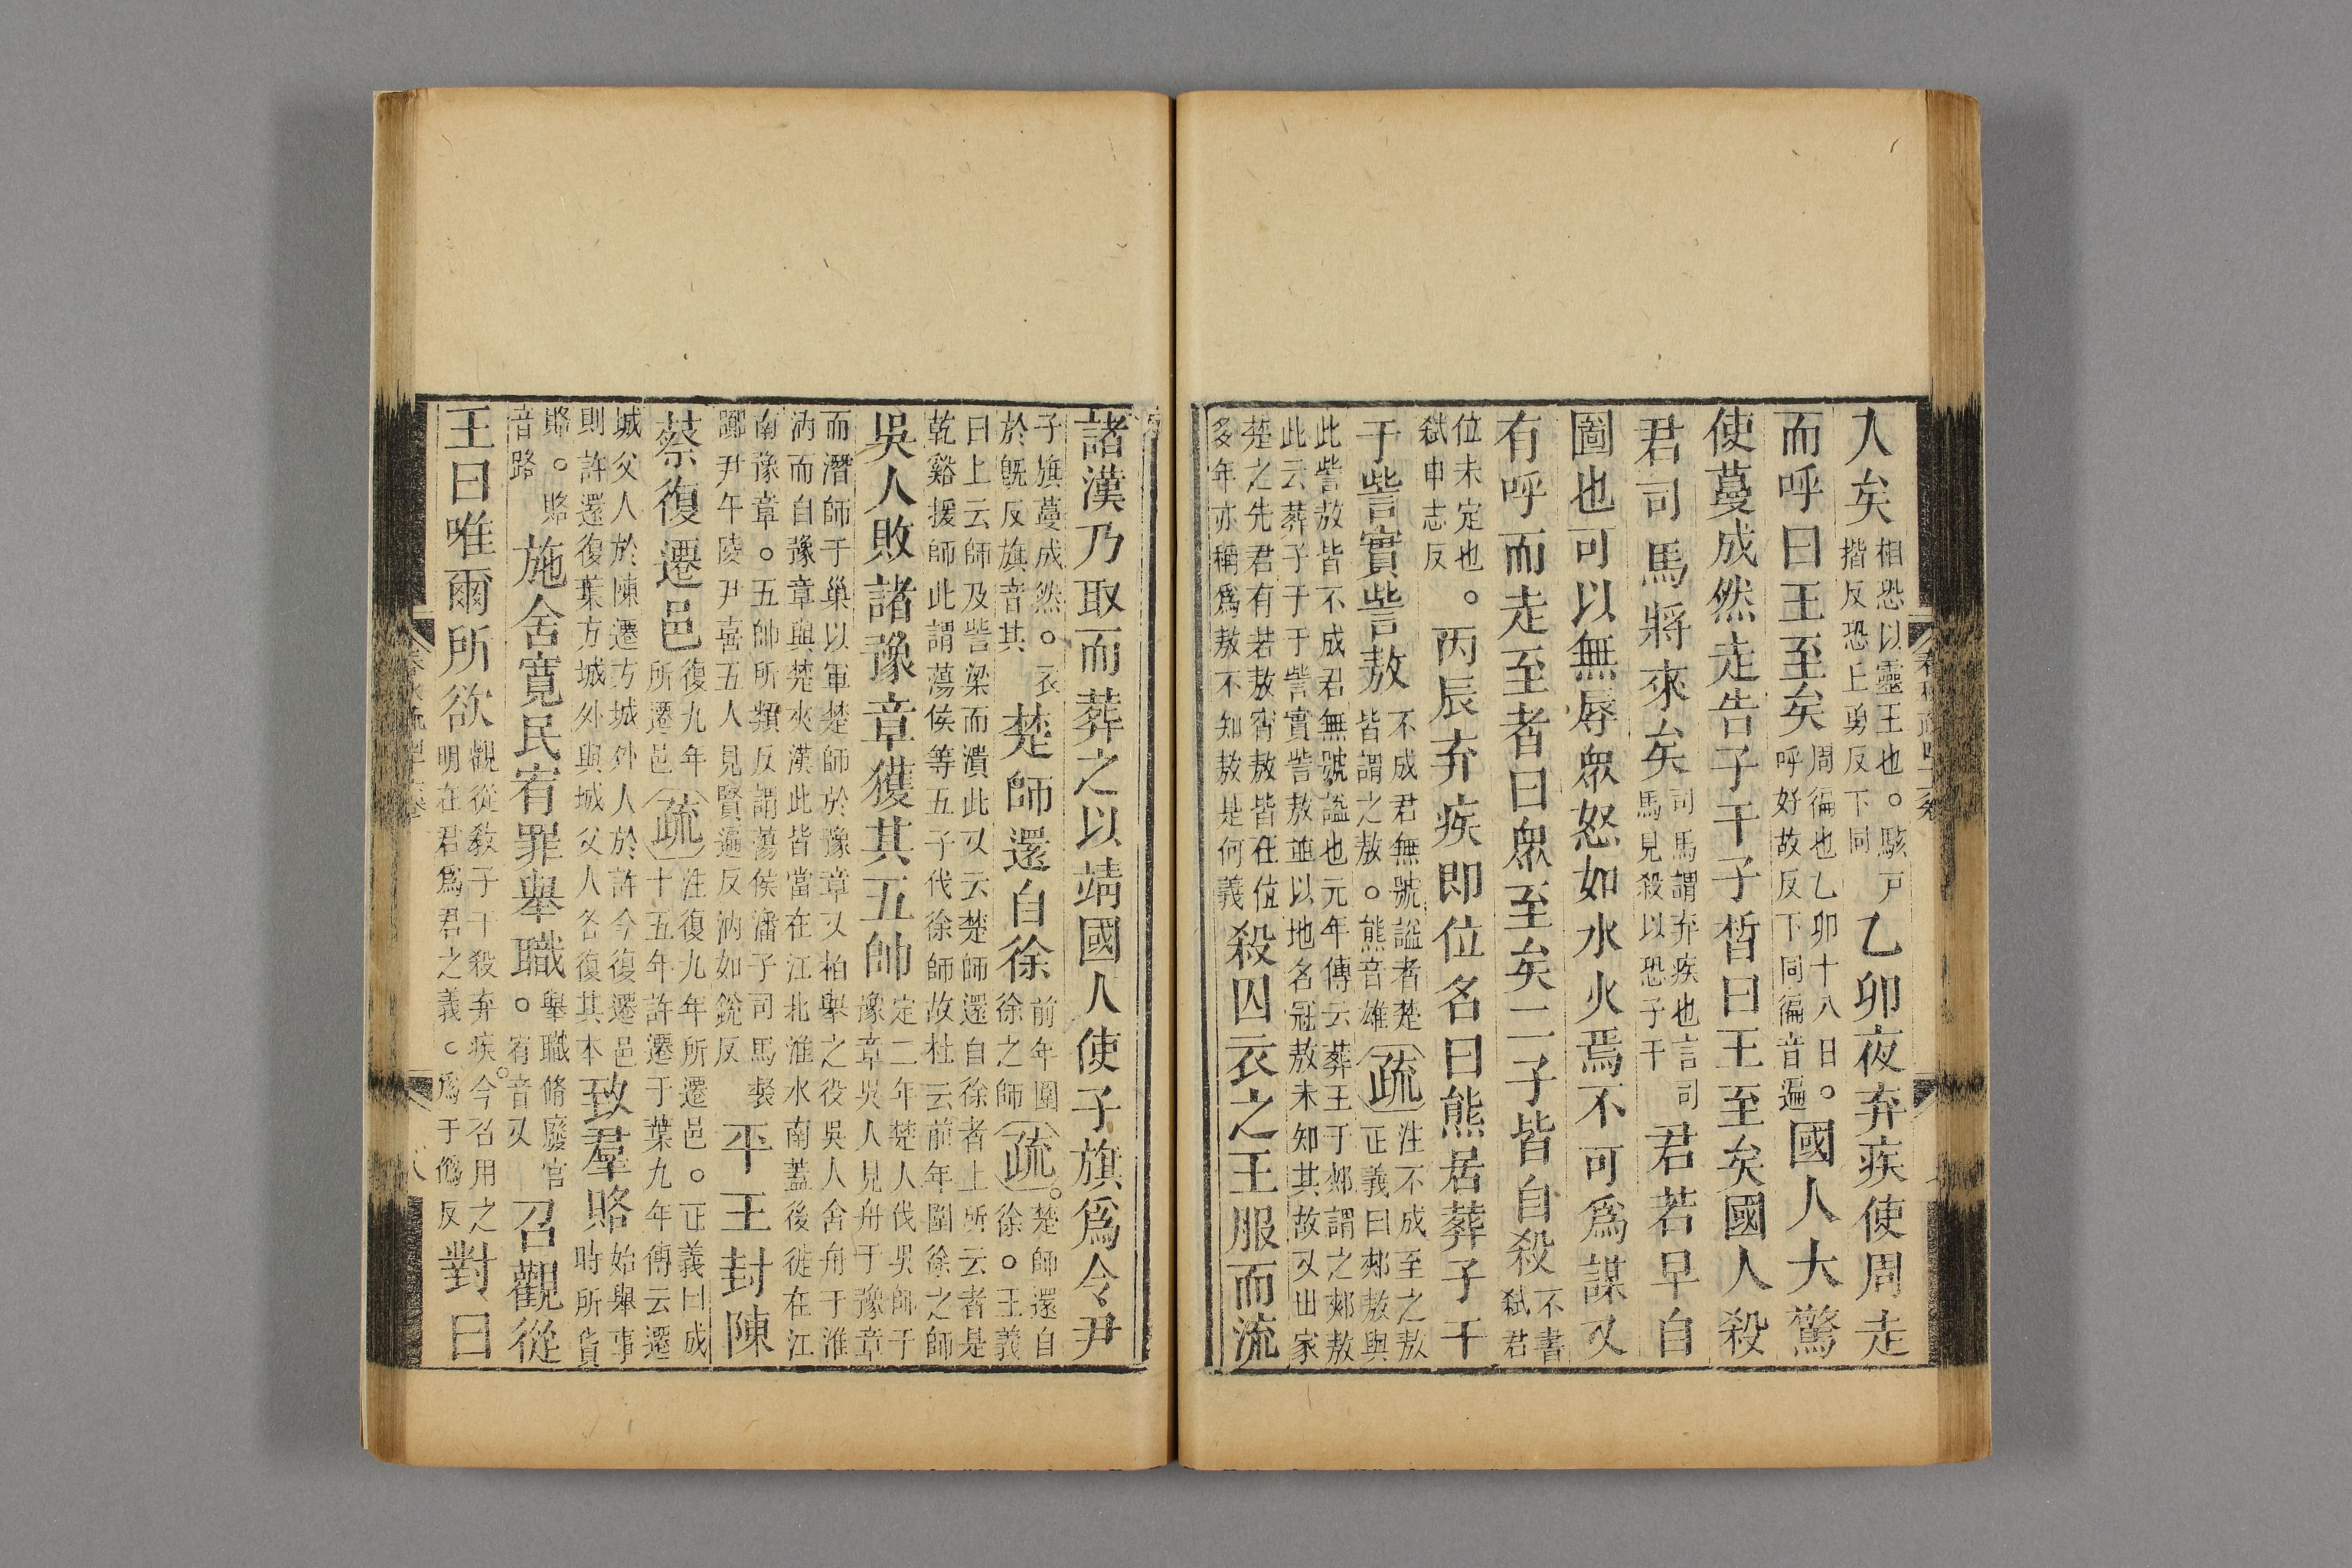 入矣相恐以靈王也。駭戸揩反恐上勇反下同乙卯夜弃疾使周走
而呼曰王至矣周徧也乙卯十八日。呼好故反下同徧音遍國人大驚
使蔓成然走告子干子晳曰王至矣國人殺
君司馬將來矣司馬謂弃疾也言司馬見殺以恐子干君若早自
圖也可以無辱衆怒如水火焉不可爲謀又
有呼而走至者曰衆至矣二子皆自殺不書弑君
位未定也。弑申志反丙辰弃疾即位名曰熊居葬子干
于訾實訾敖不成君無號謚者楚皆謂之敖。熊音雄疏注不成至之敖正義曰郟敖與
此訾敖皆不成君無號謚也元年傳云葬王于郟謂之郟敖
此云葬子干于訾實訾敖並以地名冠敖未知其故又世家
楚之先君有若敖霄敖皆在位
多年亦稱爲敖不知敖是何義殺囚衣之王服而流
諸漢乃取而葬之以靖國人使子旗爲令尹
子旗蔓成然。衣於既反旗音其楚師還自徐前年圍徐之師疏。楚師還自徐。正義
曰上云師及訾梁而潰此又云楚師還自徐者上所云者是
乾谿援師此謂蕩侯等五子代徐師故杜云前年圍徐之師
吳人敗諸豫章獲其五帥定二年楚人伐吳師于豫章吳人見舟于豫章
而潛師于巢以軍楚師於豫章又柏舉之役吳人舍舟于淮
汭而自豫章與楚夾漢此皆當在江北淮水南蓋後徙在江
南豫章。五帥所類反謂蕩侯潘子司馬裻
嚻尹午陵尹喜五人見賢遍反汭如銳反平王封陳
蔡復遷邑復九年所遷邑疏注復九年所遷邑。正義曰成十五年許遷于葉九年傳云遷
城父人於陳遷方城外人於許今復遷邑
則許還復葉方城外與城父人各復其本致羣賂始舉事時所貨
賂。賂音路施舍寬民宥罪舉職舉職脩廢官。宥音又召觀從
王曰唯爾所欲觀從敎子干殺弃疾今召用之明在君爲君之義。爲于僞反對曰